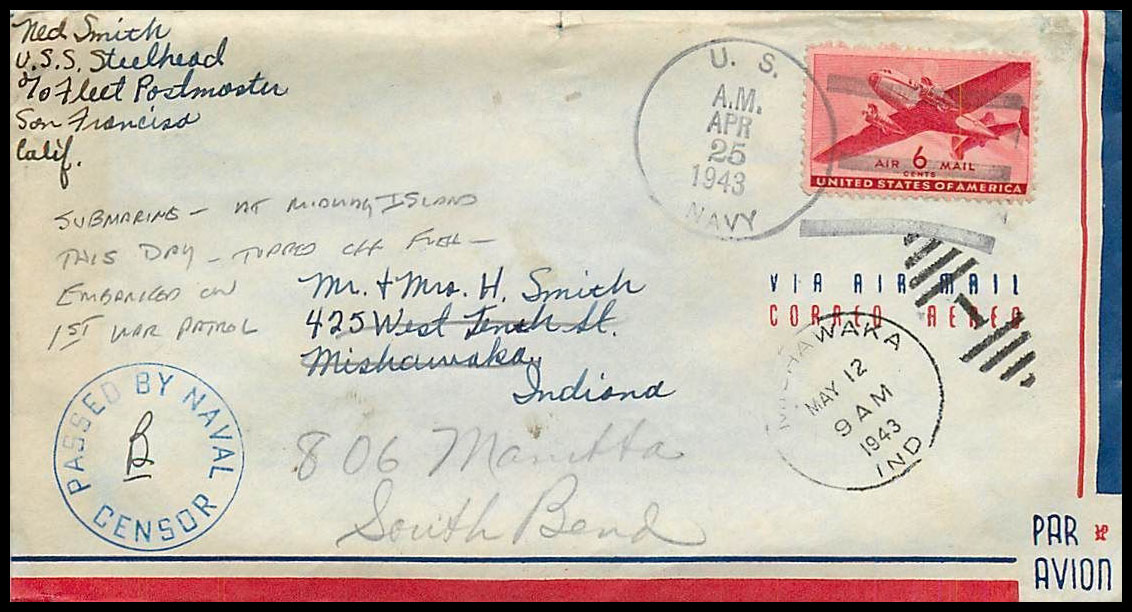 Ned Smith
U.S.S. Steelhead
c/o Fleet Postmaster
San Francisco
Calif.
U. S.
A.M.
APR
25
1943
NAVY
AIR 6 MAIL
CENTS
UNITED STATES OF AMERICA
SUBMARINE - AT MIDWAY ISLAND
THIS DAY - TOPPED OFF FUEL -
EMBARKED ON
1ST WAR PATROL
VIA AIR MAIL
CORREO AEREO
Mr. + Mrs. H. Smith
425 West Tenth St.
Mishawaka,
Indiana
MISHAWAKA
MAY 12
9 AM
1943
IND
PASSED BY NAVAL
B
CENSOR
806 Manitta
South Bend
PAR
AVION